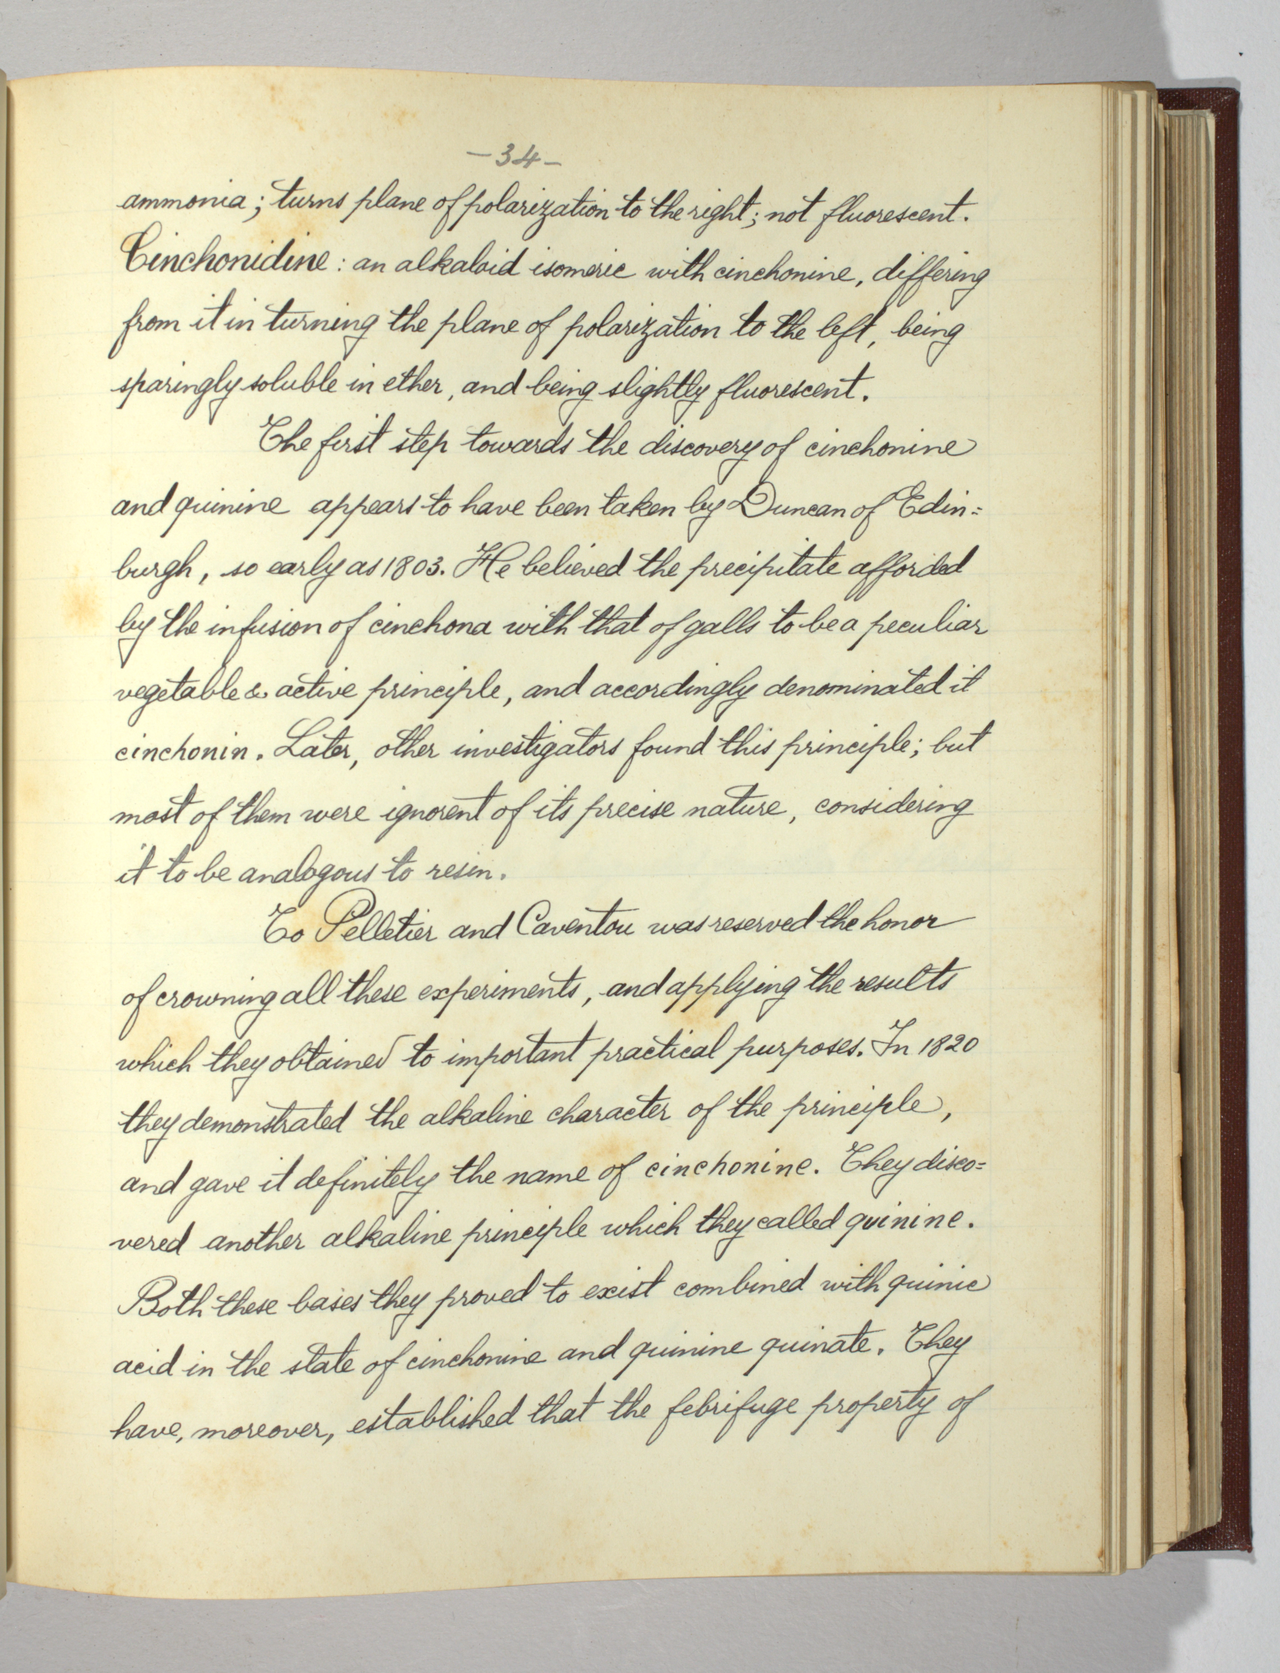 -34-
ammonia; turns plane of polarization to the right; not fluorescent.
Cinchonidine: an alkaloid isomeric with cinchonine, differing
from it in turning the plane of polarization to the left, being
sparingly soluble in ether, and being slightly fluorescent.
The first step towards the discovery of cinchonine
and quinine appears to have been taken by Duncan of Edin=
burgh, so early as 1803. He believed the precipitate afforded
by the infusion of cinchona with that of galls to be a peculiar
vegetable & active principle, and accordingly denominated it
cinchonin. Later, other investigators found this principle; but
most of them were ignorent of its precise nature, considering
it to be analogous to resin.
To Pelletier and Caventou was reserved the honor
of crowning all these experiments, and applying the results
which they obtained to important practical purposes. In 1820
they demonstrated the alkaline character of the principle,
and gave it definitely the name of cinchonine. They disco=
vered another alkaline principle which they called quinine.
Both these bases they proved to exist combined with quinic
acid in the state of cinchonine and quinine quinate. They
have, moreover, established that the febrifuge property of